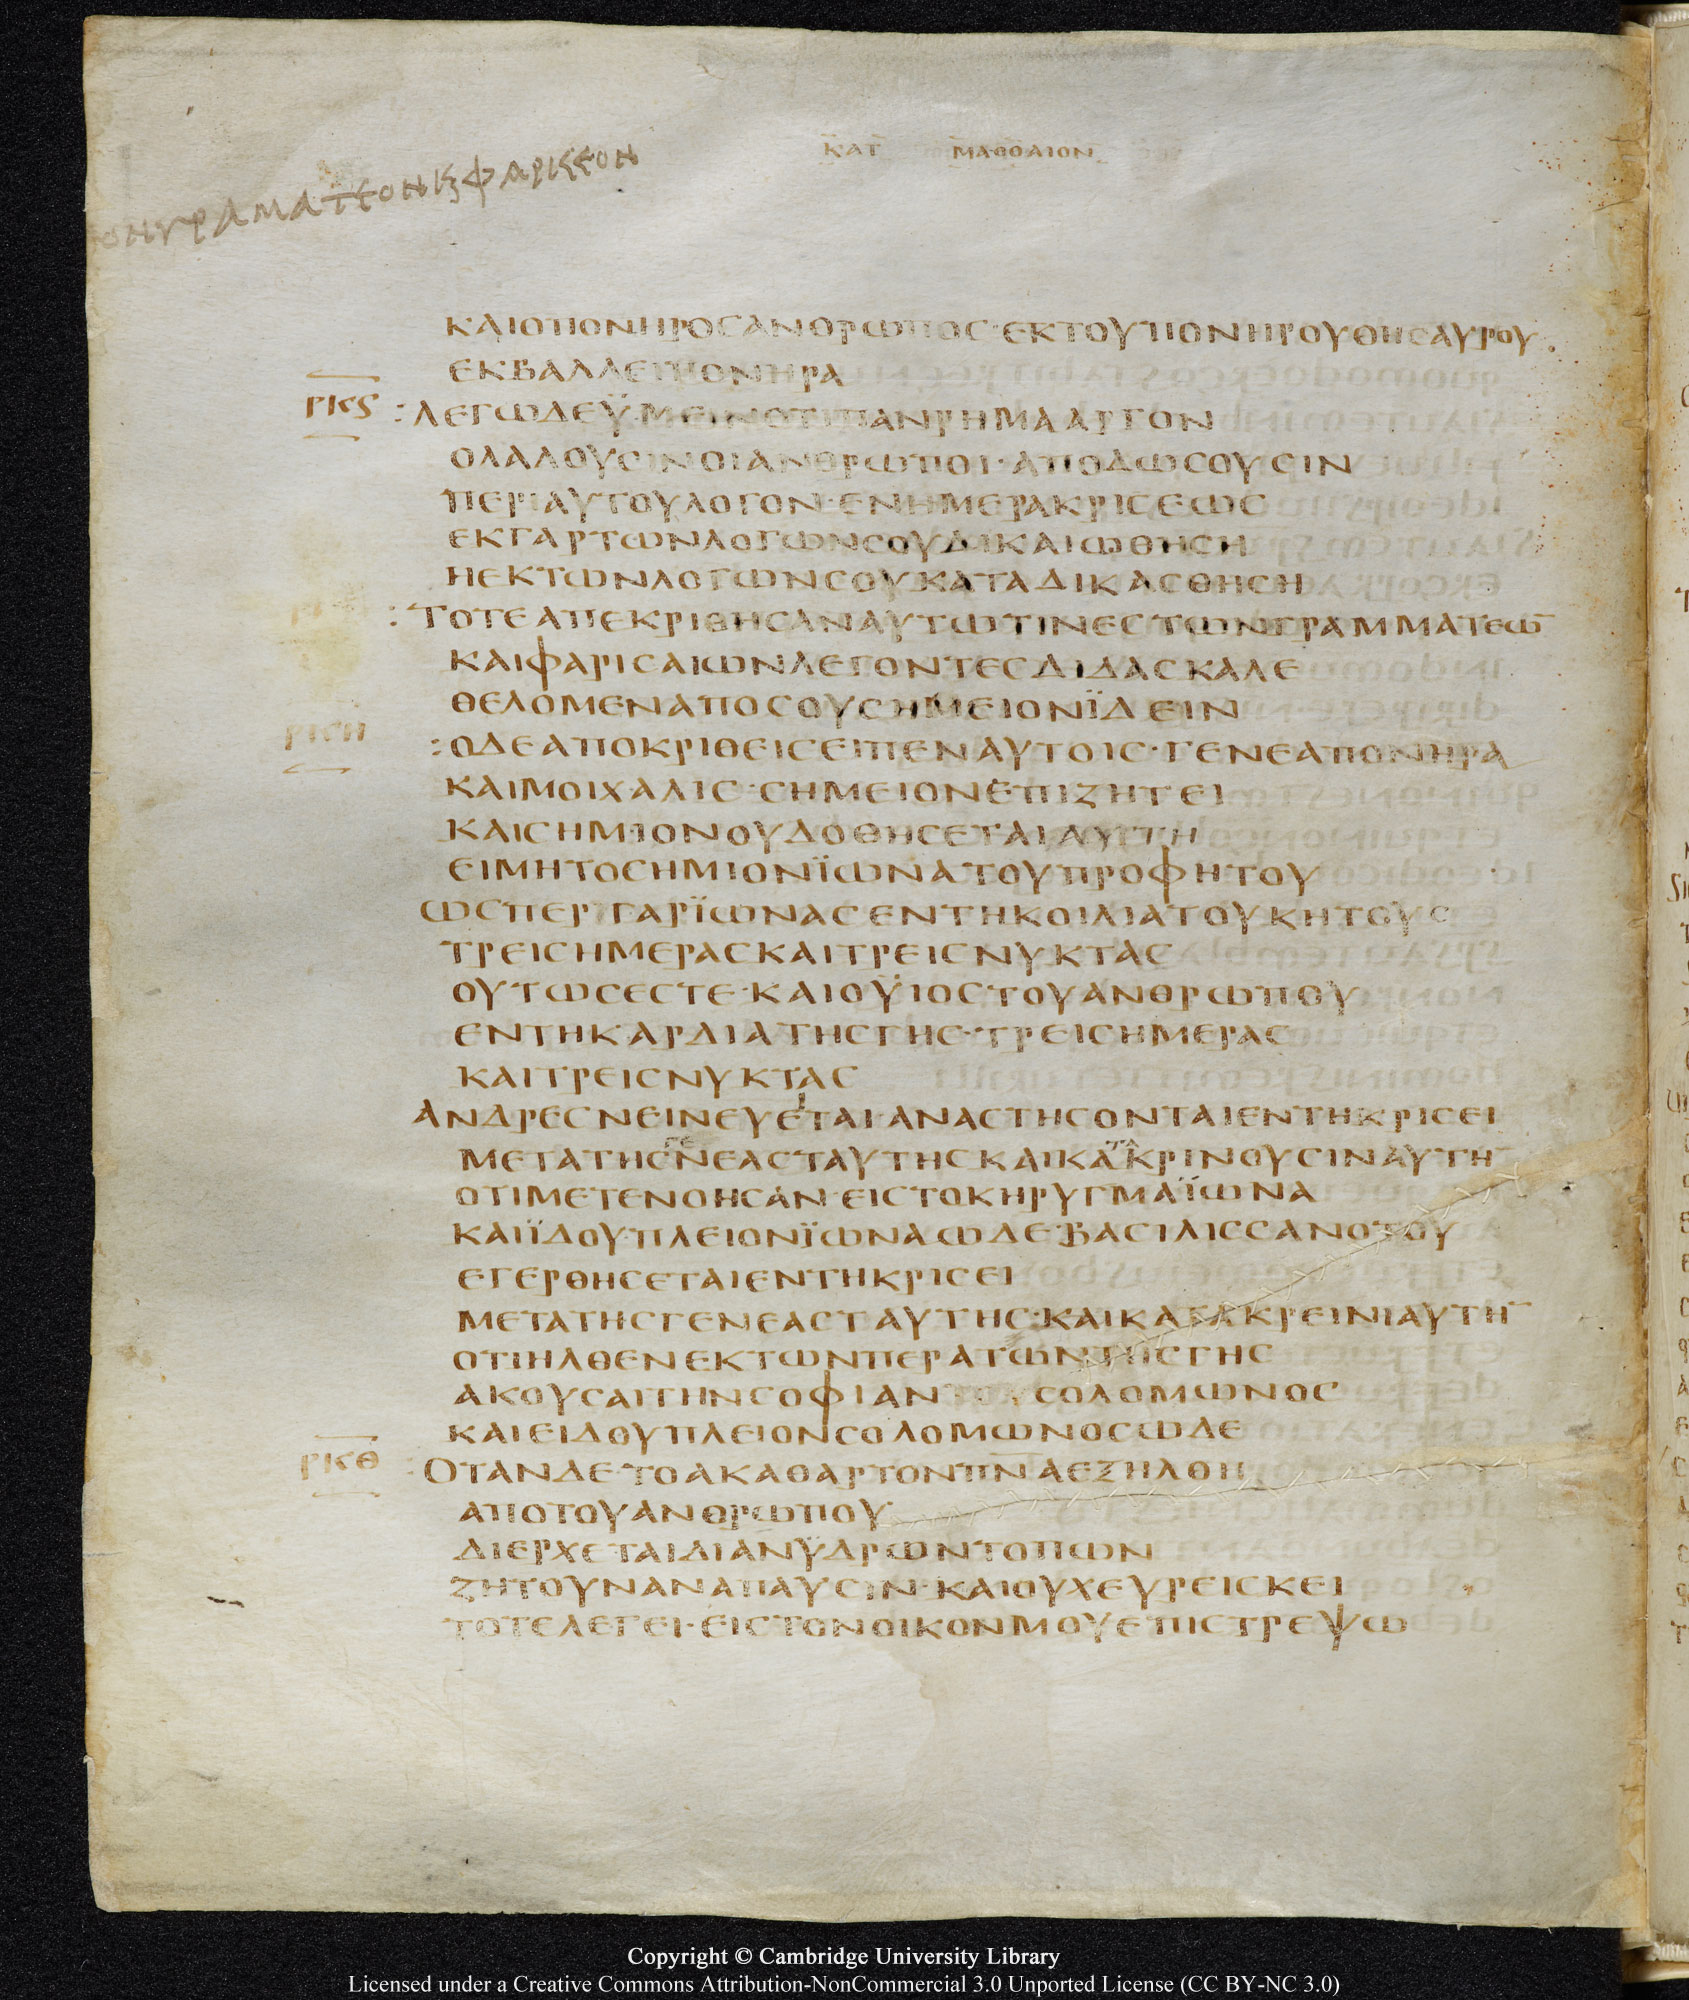 ΚΑΤ ΜΑΘΘΑΙΟΝ
ΟΝΓΡΑΜΑΤΕΟΝΚϗΦΑΡΙΣΕΟΝ
ΚΑΙΟΠΟΝΗΡΟСΑΝΘΡωΠΟС·ΕΚΤΟΥΠΟΝΗΡΟΥΘΗСΑΥΡΟΥ
ΕΚΒΑΛΛΕΙΠΟΝΗΡΑ
ΡΚϛ :ΛΕΓωΔΕΫΜΕΙΝΟΤΙΠΑΝΡΗΜΑΑΡΓΟΝ
ΟΛΑΛΟΥСΙΝΟΙΑΝΘΡωΠΟΙ·ΑΠΟΔωСΟΥСΙΝ
ΠΕΡΙΑΥΤΟΥΛΟΓΟΝ·ΕΝΗΜΕΡΑΚΡΙСΕωС
ΕΚΓΑΡΤωΝΛΟΓωΝСΟΥΔΙΚΑΙωΘΗСΗ
ΗΕΚΤωΝΛΟΓωΝСΟΥΚΑΤΑΔΙΚΑСΘΗСΗ
:ΤΟΤΕΑΠΕΚΡΙΘΗСΑΝΑΥΤωΤΙΝΕСΤωΝΓΡΑΜΜΑΤΕω̅
ΚΑΙΦΑΡΙСΑΙωΝΛΕΓΟΝΤΕСΔΙΔΑСΚΑΛΕ
ΘΕΛΟΜΕΝΑΠΟСΟΥСΗΜΕΙΟΝΪΔΕΙΝ
ΡΚΗ :ΟΔΕΑΠΟΚΡΙΘΕΙСΕΙΠΕΝΑΥΤΟΙС·ΓΕΝΕΑΠΟΝΗΡΑ
ΚΑΙΜΟΙΧΑΛΙС·СΗΜΕΙΟΝΕΠΙΖΗΤΕΙ
ΚΑΙСΗΜΙΟΝΟΥΔΟΘΗСΕΤΑΙΑΥΤΗ
ΕΙΜΗΤΟСΗΜΙΟΝΪωΝΑΤΟΥΠΡΟΦΗΤΟΥ
ωСΠΕΡΓΑΡΪωΝΑСΕΝΤΗΚΟΙΛΙΑΤΟΥΚΗΤΟΥС
ΤΡΕΙСΗΜΕΡΑСΚΑΙΤΡΕΙСΝΥΚΤΑС
ΟΥΤωСΕСΤΕ·ΚΑΙΟΫΙΟСΤΟΥΑΝΘΡωΠΟΥ
ΕΝΤΗΚΑΡΔΙΑΤΗСΓΗС·ΤΡΕΙСΗΜΕΡΑС
ΚΑΙΤΡΕΙСΝΥΚΤΑС
ΑΝΔΡΕСΝΕΙΝΕΥΕΤΑΙ·ΑΝΑСΤΗСΟΝΤΑΙΕΝΤΗΚΡΙСΕΙ
ΜΕΤΑΤΗСΓΕΝΕΑСΤΑΥΤΗСΚΑΙΚΑΤΑΚΡΙΝΟΥСΙΝΑΥΤΗ̅
ΟΤΙΜΕΤΕΝΟΗСΑΝ·ΕΙСΤΟΚΗΡΥΓΜΑΪωΝΑ
ΚΑΙΪΔΟΥΠΛΕΙΟΝΪωΝΑωΔΕ·ΒΑСΙΛΙССΑΝΟΤΟΥ
ΕΓΕΡΘΗСΕΤΑΙΕΝΤΗΚΡΙСΕΙ
ΜΕΤΑΤΗСΓΕΝΕΑСΤΑΥΤΗС·ΚΑΙΚΑΤΑΚΡΕΙΝΙΑΥΤΗ̅
ΟΤΙΗΛΘΕΝΕΚΤωΝΠΕΡΑΤωΝΤΗСΓΗС
ΑΚΟΥСΑΙΤΗΝСΟΦΙΑΝΤΟΥСΟΛΟΜωΝΟС
ΚΑΙΕΙΔΟΥΠΛΕΙΟΝСΟΛΟΜωΝΟСωΔΕ
ΡΚΘ :ΟΤΑΝΔΕ·ΤΟΑΚΑΘΑΡΤΟΝΠ̅Ν̅ΑΕΞΗΛΘΗ
ΑΠΟΤΟΥΑΝΘΡωΠΟΥ
ΔΙΕΡΧΕΤΑΙΔΙΑΝΫΔΡωΝΤΟΠωΝ
ΖΗΤΟΥΝΑΝΑΠΑΥСΙΝ·ΚΑΙΟΥΧΕΥΡΕΙСΚΕΙ
ΤΟΤΕΛΕΓΕΙ·ΕΙСΤΟΝΟΙΚΟΝΜΟΥΕΠΙСΤΡΕΨω
Copyright © Cambridge University Library
Licensed under a Creative Commons Attribution-NonCommercial 3.0 Unported License (CC BY-NC 3.0)